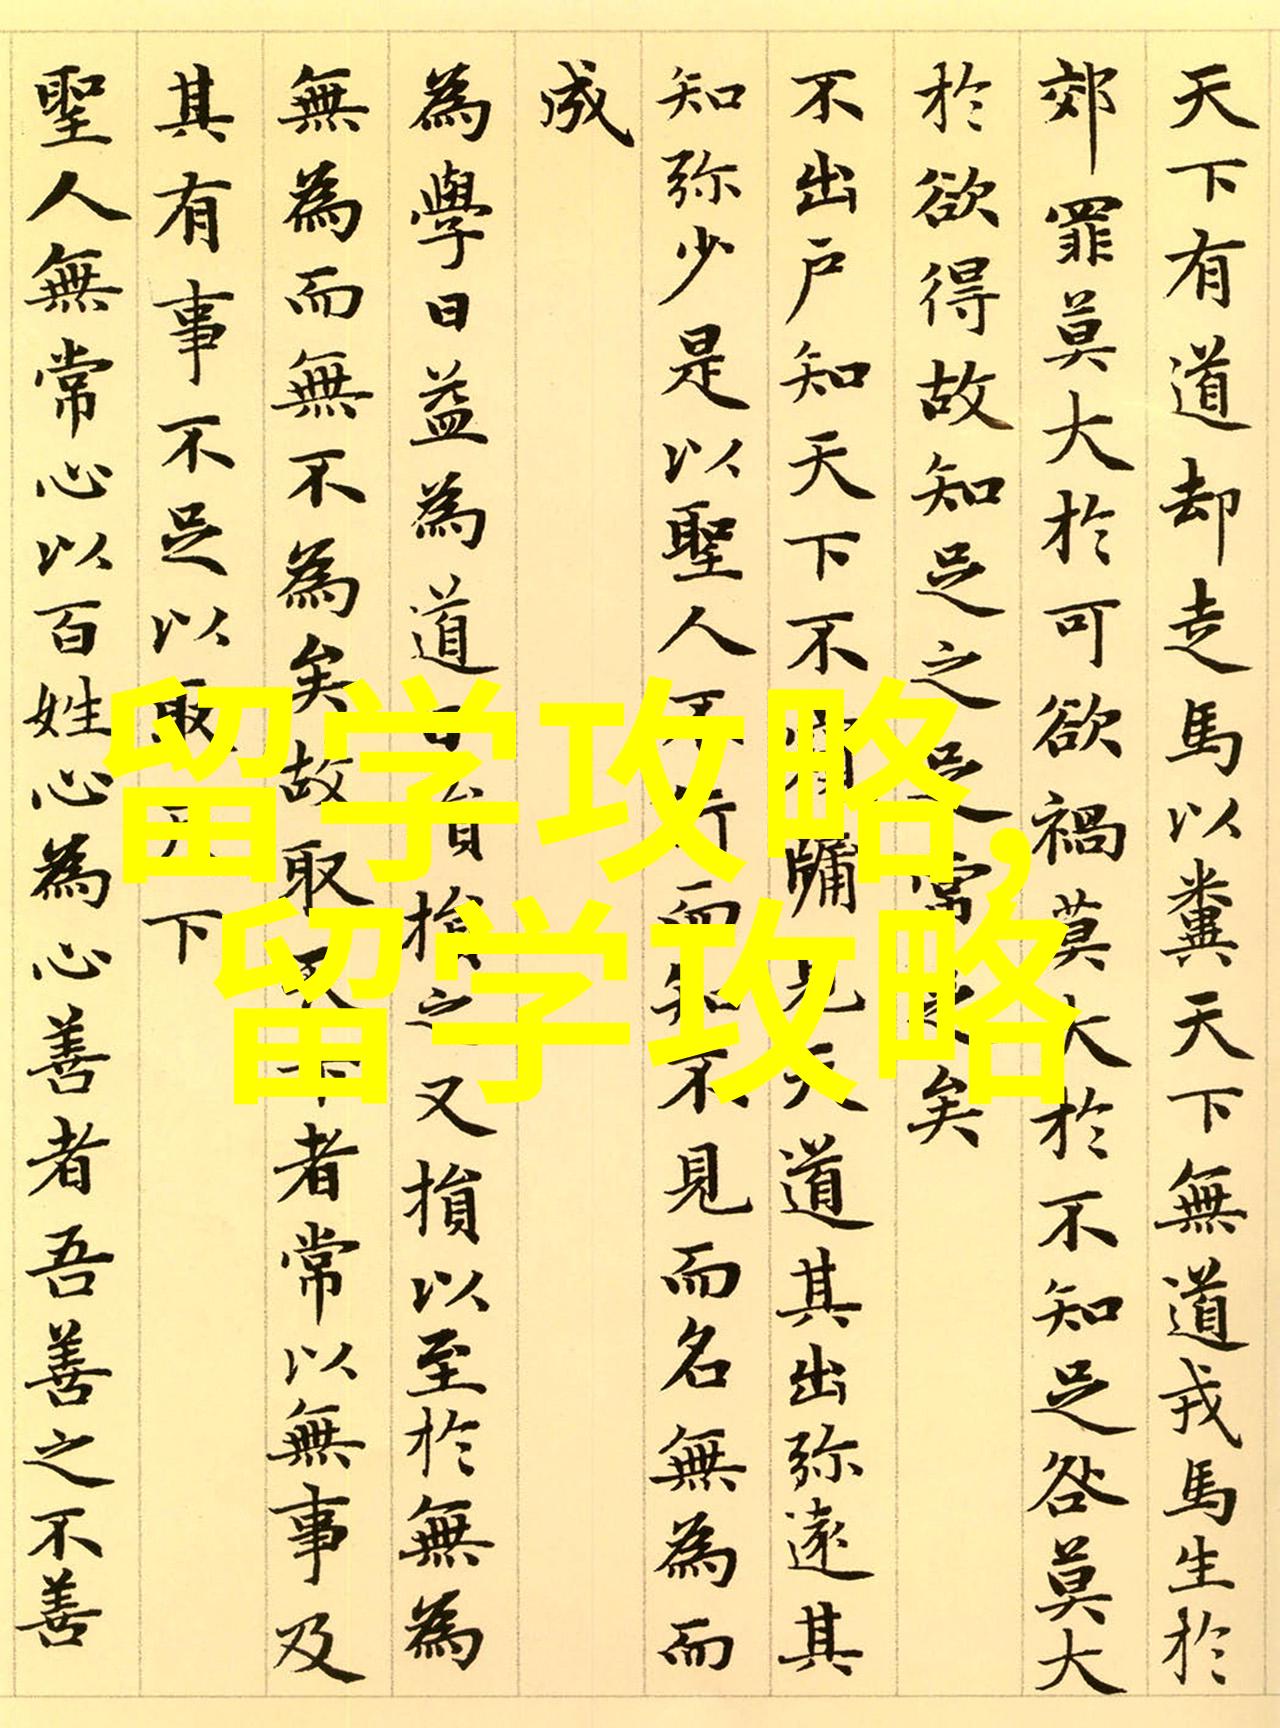 天下有道却走馬以糞天下無道戎馬生於
郊罪莫大於可欲禍莫大於不知足咎莫大
於欲得故知足之足常足矣
不出戶知天下不窺牖見天道其出弥遠其
知弥少是以聖人不行而知不見而名無為而
成
為學日益為道日損損之又損以至於無為
無為而無不為矣故取天下者常以無事及
其有事不足以取天下
聖人無常心以百姓心為心善者吾善之不善
留学攻略,
留学攻略